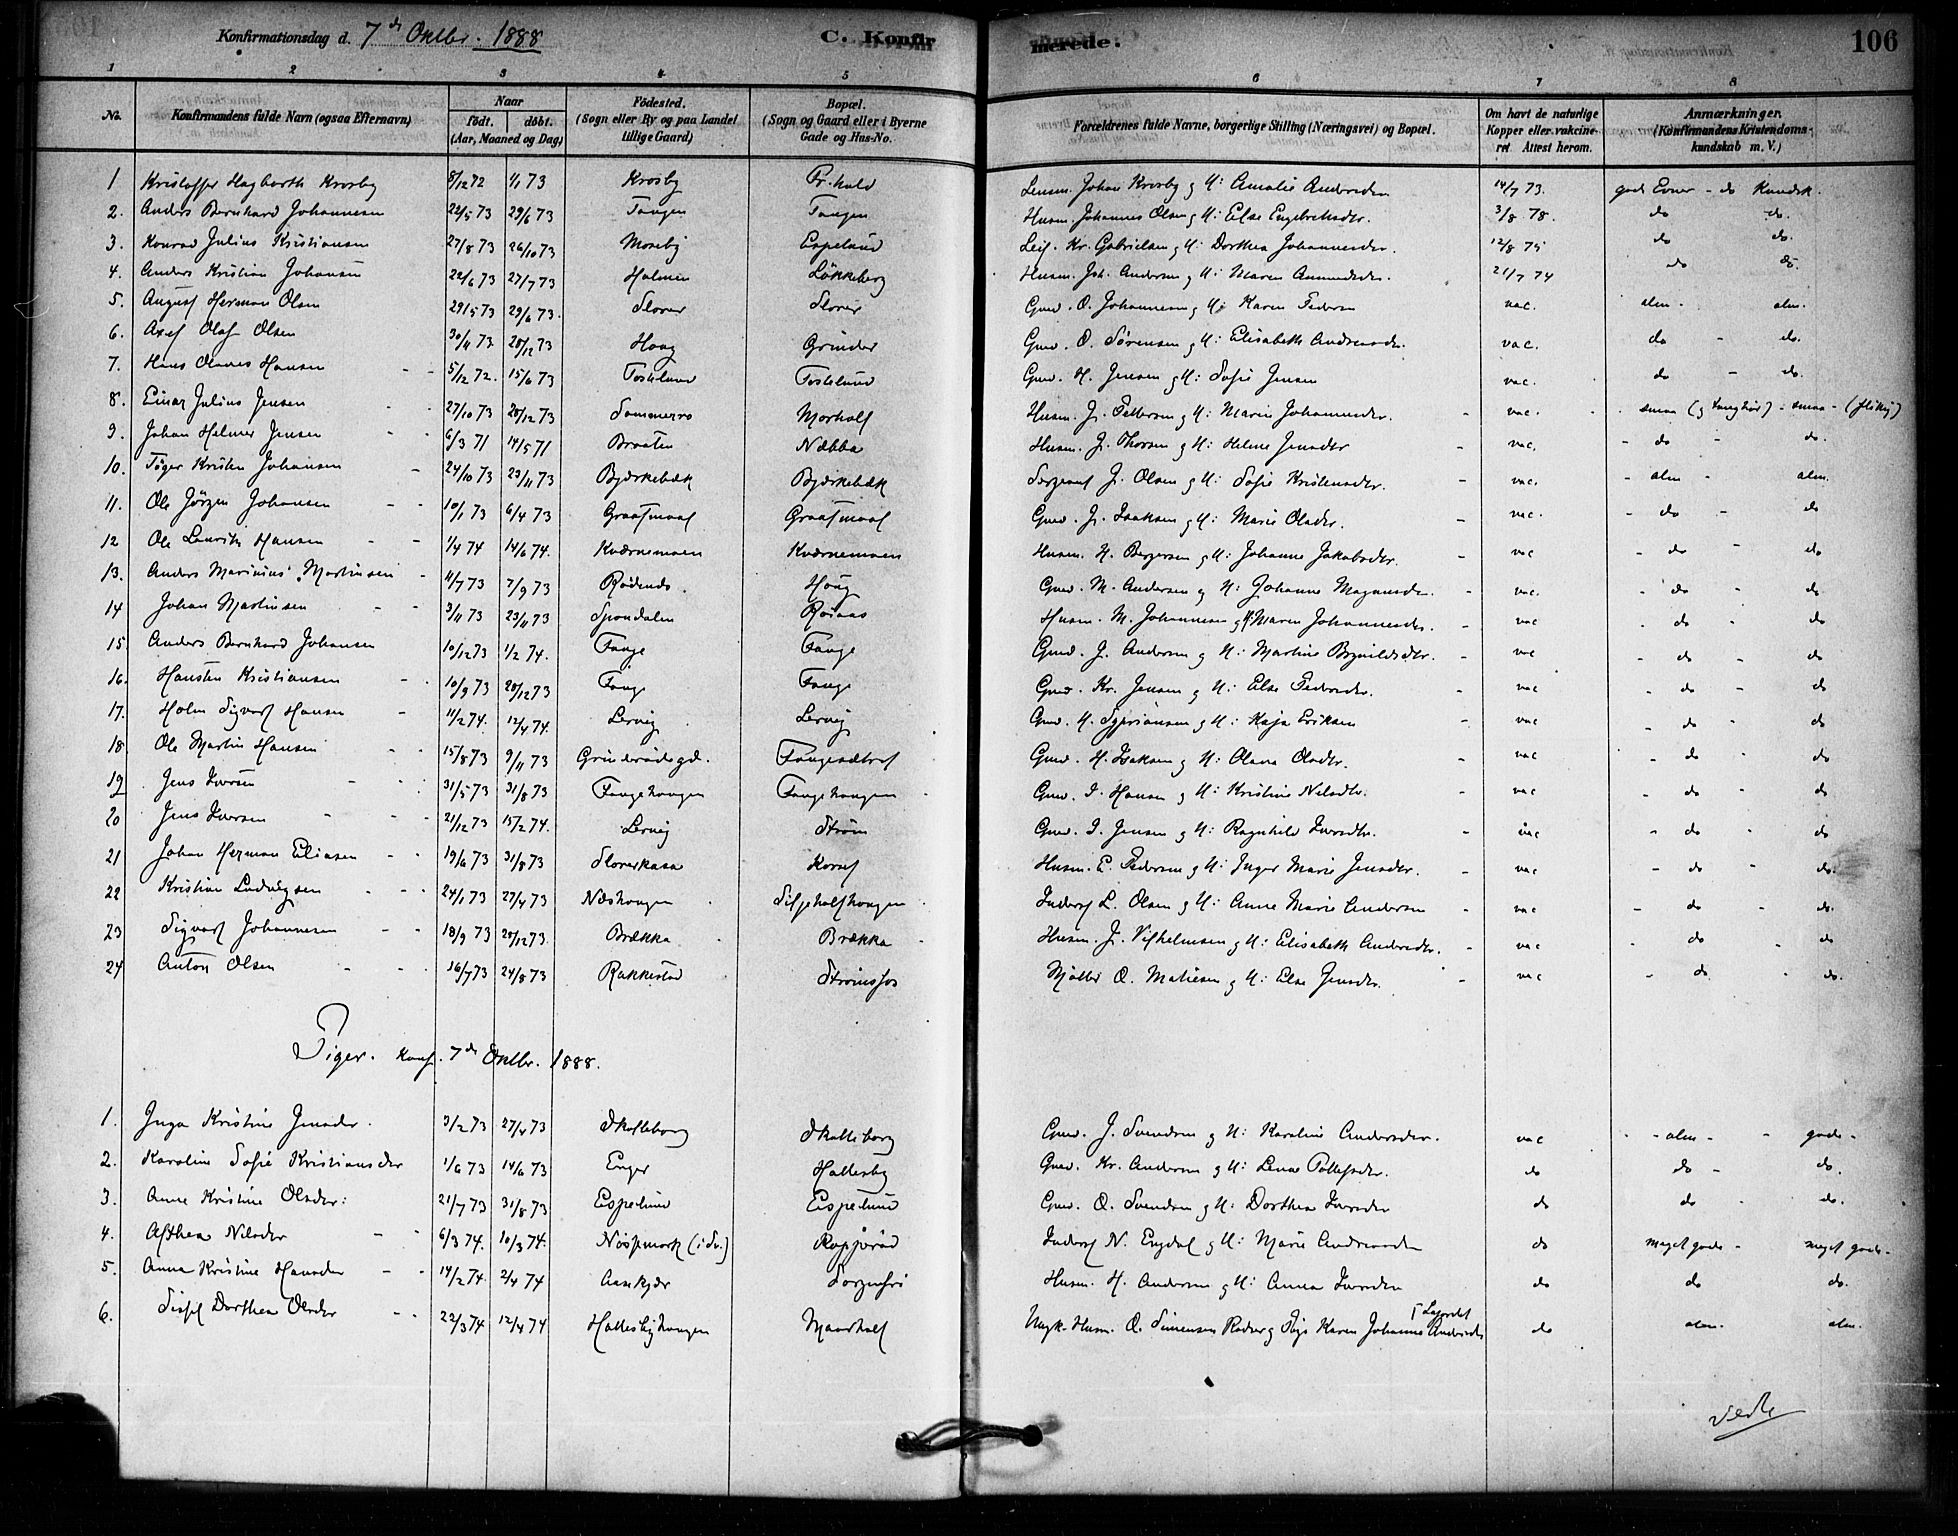 Konfirmationsdag d. 7de Oktbr. 1888 C. Konfirmerede. 106
1 2 3 4 5 6 7 8
No. Konfirmandens fulde Navn (ogsaa Efternavn) Naar født. døbt. (Aar, Maaned og Dag) Fødested. (Sogn eller By og paa Landet tillige Gaard) Bopæl. (Sogn og Gaard eller i Byerne Gade og Hus-No. Forældrenes fulde Navne, borgerlige Stilling (Næringsvei) og Bopæl. Om havt de naturlige Kopper eller vakcineret Attest herom. Anmærkninger. (Konfirmandens Kristendomskundskab m. V.)
1 Kristoffer Hagbarth Krosby 8/12 72 1/1 73 Krosby Fr.hald Lensm. Johan Krosby og H: Amalie Andersden 14/7 73. gode Evner - do Kundsk.
2. Anders Bernhard Johannesen 22/5 73 29/6 73 Tangen Tangen Husm. Johannes Olsen og H: Else Engebretsdtr. 3/8 78. do do.
3. Konrad Julius Kristiansen 27/8 73 26/10 73 Moseby Espelund Leil. Kr. Gabrielsen og H: Dorthea Johannesdr. 12/8 75 do do.
4. Anders Kristian Johansen 22/6 73 27/7 73 Holmen Løkkeberg Husm. Joh. Andersen og H: Maren Amundsdr. 21/7 74 do do.
5. August Herman Olsen 29/5 73 29/6 73. Slorer Slorer Gmd. O. Johannesen og H: Karen Pedersen vac. alm. alm.
6. Axel Olaf Olsen 30/11 73 28/12 73 Haag Grinder Gmd. O. Sørensen og H: Elisabeth Andreasdr. vac. do - do.
7. Hans Olaves Hansen 5/12 72. 15/6 73 Tostelund Tostelund Gmd. H. Jensen og H: Sofie Jensen vac. do - do.
8. Einar Julius Jensen 27/10 73 28/12 73 Sommerro Morholt Husm. J. Pettersen og H: Marie Johannesdr. vac. smaa (og tunghør) - smaa - (flittig)
9. Johan Helmer Jensen 6/3 71 14/5 71 Braaten Næbba Husm. J. Thorsen og H: Helene Jensdtr vac. - do - do.
10. Tøger Kristen Johansen 24/10 73 23/11 73 Bjørkebæk Bjørkebæk Sergeant J. Olsen og H: Sofie Kristensdr. vac. - alm - alm.
11. Ole Jørgen Johansen 10/1 73 6/4 73 Graatmaal Graatmaal Gmd. J. Isaksen og H: Marie Olsdr. vac. - do - do
12 Ole Lauritz Hansen 1/4 74 14/6 74. Kværnemoen Kværnemoen Husm. H. Bergersen og H: Johanne Jakobsdr. vac - do - do
13. Anders Marinius Martinsen 11/7 73 7/9 73 Rødenes. Haug Gmd. M. Andersen og H: Johanne Magnusdr. vac. - do - do
14 Johan Martinsen 3/11 73 23/11 73 Spondalen Røiaas Husm. M. Johannesen og H: Maren Johannesdr. vac - do - do
15. Anders Bernhard Johansen 10/12 73 1/2 74. Fange Fange Gmd. J. Andersen og H: Martine Brynildsdtr. vac - do - do
16. Hansten Kristiansen 10/9 73 28/12 73 Fange Fange Gmd. Kr. Jensen og H: Else Pedersdr. vac - do - do
17. Holm Sigvart Hansen 11/2 74. 12/4 74. Lervig Lervig Gmd. H. Syvertsen og H: Kaja Eriksen vac - do do
18. Ole Martin Hansen 15/8 73 9/11 73 Grinderødsgd. Fangesætret Gmd. H. Isaksen og H: Olava Olsdtr. vac - do do
19 Jens Iversen 31/5 73 31/8 73 Fangehaugen Fangehaugen Gmd. I. Hansen og H: Kristine Nilsdtr. vac - do - do
20 Jens Iversen 21/12 73 15/2 74. Lervig Strøm Gmd. I. Jensen og H: Ragnhild Iversdtr. vac - do - do
21 Johan Herman Eliasen 19/6 73 31/8 73 Slorerkasa Korset Husm. E. Pedersen og H: Inger Marie Jensdtr. vac - do - do.
22 Kristian Ludvigsen 24/1 73 27/4 73 Næshaugen Siljeholthaugen Inderst L. Olsen og H: Anne Marie Andersen vac - do - do.
23 Sigvart Johannesen 18/9 73 28/12 73. Brække Brække Husm. J. Vilhelmsen og H: Elisabeth Andersdtr. vac do - do
24 Anton Olsen 16/7 73 24/8 73 Rakkestad Strømsfos Møller O. Matiesen og H: Else Jensdtr. vac - do do.
Piger. Konf. 7de Oktbr. 1888.
1. Inga Kristine Jensdr. 3/2 73 27/4 73 Skolleborg Skolleborg Gmd. J. Svendsen og H: Karoline Andersdtr. vac - alm - gode -
2. Karoline Sofie Kristiansdr 1/6 73 14/6 73 Enger Hallesby Gmd. Kr. Andersen og H: Lena Tollefsdr. do do - do.
3. Anne Kristine Olsdr: 21/7 73 31/8 73 Espelund Espelund Gmd. O. Svendsen og H: Dorthea Iversdr do do - do.
4. Althea Nilsdr 6/3 74. 10/3 74. Nøssmark (i Sv.) Rapjerød Inderst N. Engdal og H: Marie Andreasdr do meget gode - meget gode -
5. Anna Kristine Hansdr 14/2 74. 2/4 74 Aaskjær Sorgenfri Husm. H. Andersen og H: Anna Iversdr do do do.
6. Sissel Dorthea Olsdr 22/3 74 12/4 74 Hallesbyhaugen Maarholt Ungk. Husm. O. Simensen Røds og Pige Karen Johanne Andersdr do alm. alm.